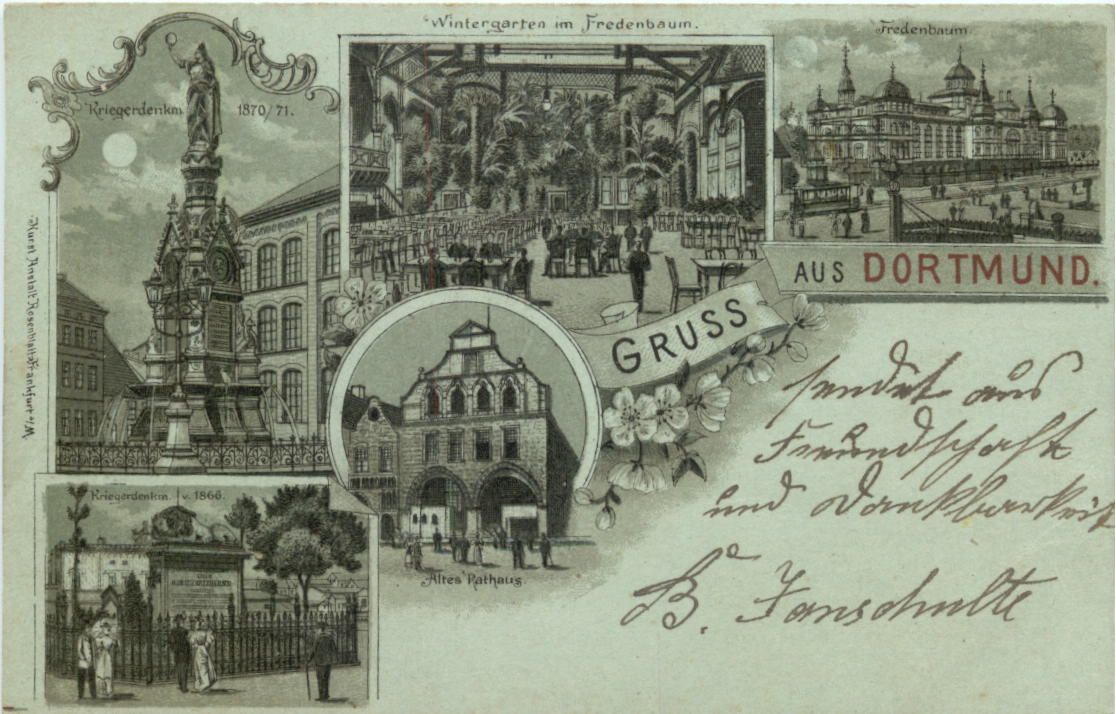 Wintergarten im Fredenbaum.
Fredenbaum.
Kriegerdenkm. 1870/71.
GRUSS
AUS DORTMUND.
Kunst Anstalt Rosenblatt Frankfurt a/M
Kriegerdenkm. v. 1866.
Altes Rathaus.
sendet aus
Freundschaft
und Dankbarkeit
B. Janschulte